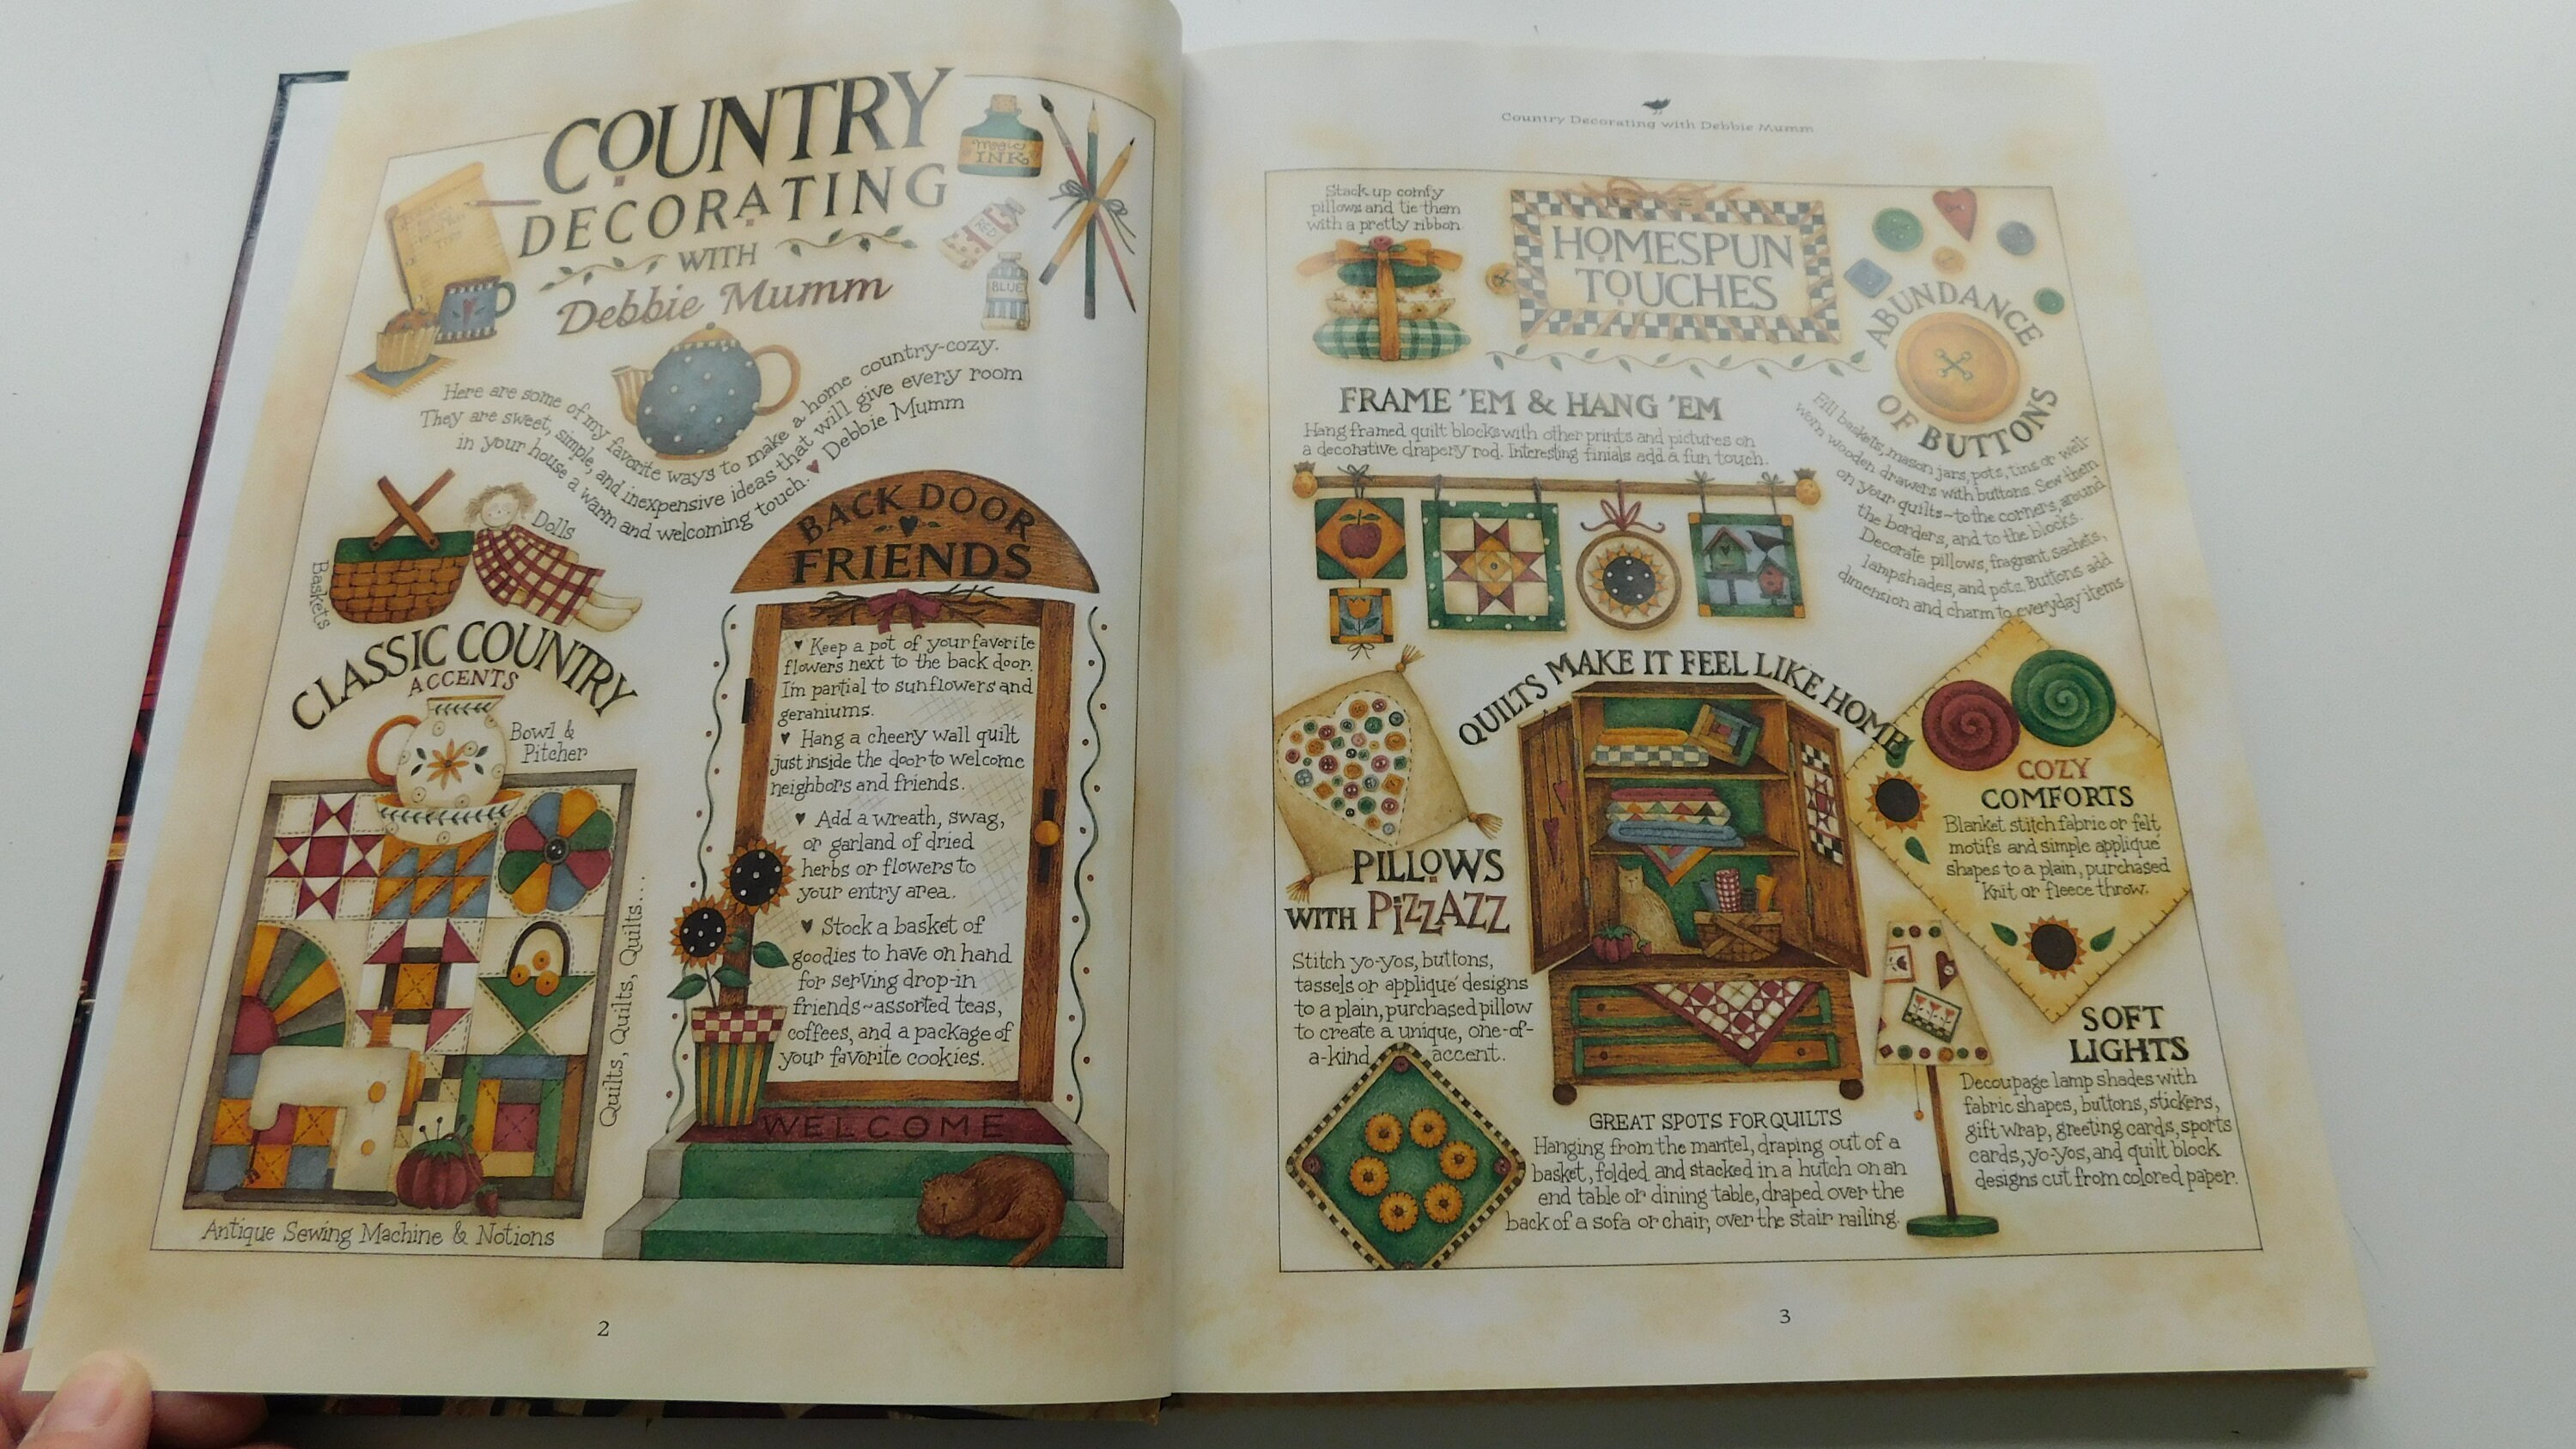 COUNTRY
DECORATING
WITH
Debbie Mumm
Magic
INK
RED
BLUE
Here are some of my favorite ways to make a home country-cozy.
They are sweet, simple, and inexpensive ideas that will give every room
in your house a warm and welcoming touch. ♥ Debbie Mumm
Baskets
Dolls
CLASSIC COUNTRY
ACCENTS
Bowl &
Pitcher
Quilts, Quilts, Quilts, Quilts...
Antique Sewing Machine & Notions
BACK DOOR
FRIENDS
♥ Keep a pot of your favorite
flowers next to the back door.
I'm partial to sunflowers and
geraniums.
♥ Hang a cheery wall quilt
just inside the door to welcome
neighbors and friends.
♥ Add a wreath, swag,
or garland of dried
herbs or flowers to
your entry area.
♥ Stock a basket of
goodies to have on hand
for serving drop-in
friends~assorted teas,
coffees, and a package of
your favorite cookies.
WELCOME
2
Country Decorating with Debbie Mumm
Stack up comfy
pillows and tie them
with a pretty ribbon.
HOMESPUN
TOUCHES
ABUNDANCE
OF BUTTONS
Fill baskets, mason jars, pots, tins or well-
worn wooden drawers with buttons. Sew them
on your quilts~to the corners, around
the borders, and to the blocks.
Decorate pillows, fragrant sachets,
lampshades, and pots. Buttons add
dimension and charm to everyday items.
FRAME 'EM & HANG 'EM
Hang framed quilt blocks with other prints and pictures on
a decorative drapery rod. Interesting finials add a fun touch.
QUILTS MAKE IT FEEL LIKE HOME
PILLOWS
WITH PIZZAZZ
Stitch yo-yos, buttons,
tassels or appliqué designs
to a plain, purchased pillow
to create a unique, one-of-
a-kind accent.
COZY
COMFORTS
Blanket stitch fabric or felt
motifs and simple applique
shapes to a plain, purchased
knit or fleece throw.
SOFT
LIGHTS
Decoupage lamp shades with
fabric shapes, buttons, stickers,
gift wrap, greeting cards, sports
cards, yo-yos, and quilt block
designs cut from colored paper.
GREAT SPOTS FOR QUILTS
Hanging from the mantel, draping out of a
basket, folded and stacked in a hutch on an
end table or dining table, draped over the
back of a sofa or chair, over the stair railing.
3